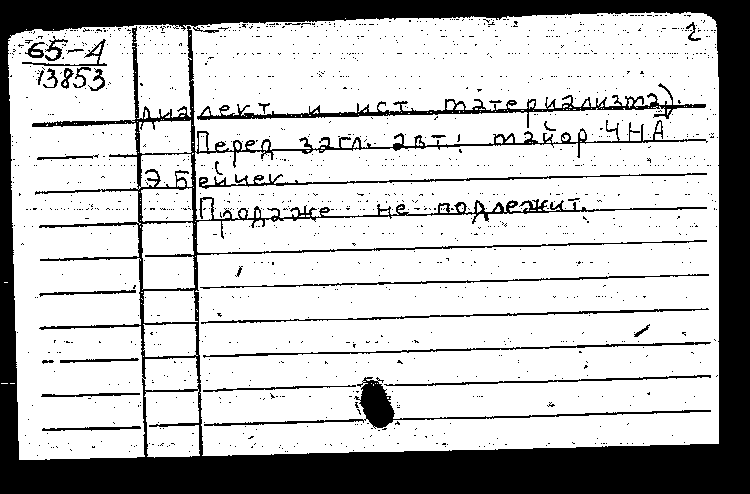 65-4
13853
2
диалект. и ист. материализма).
Перед загл. авт.: майор ЧНА
Э. Бейчек.
Продаже не подлежит.